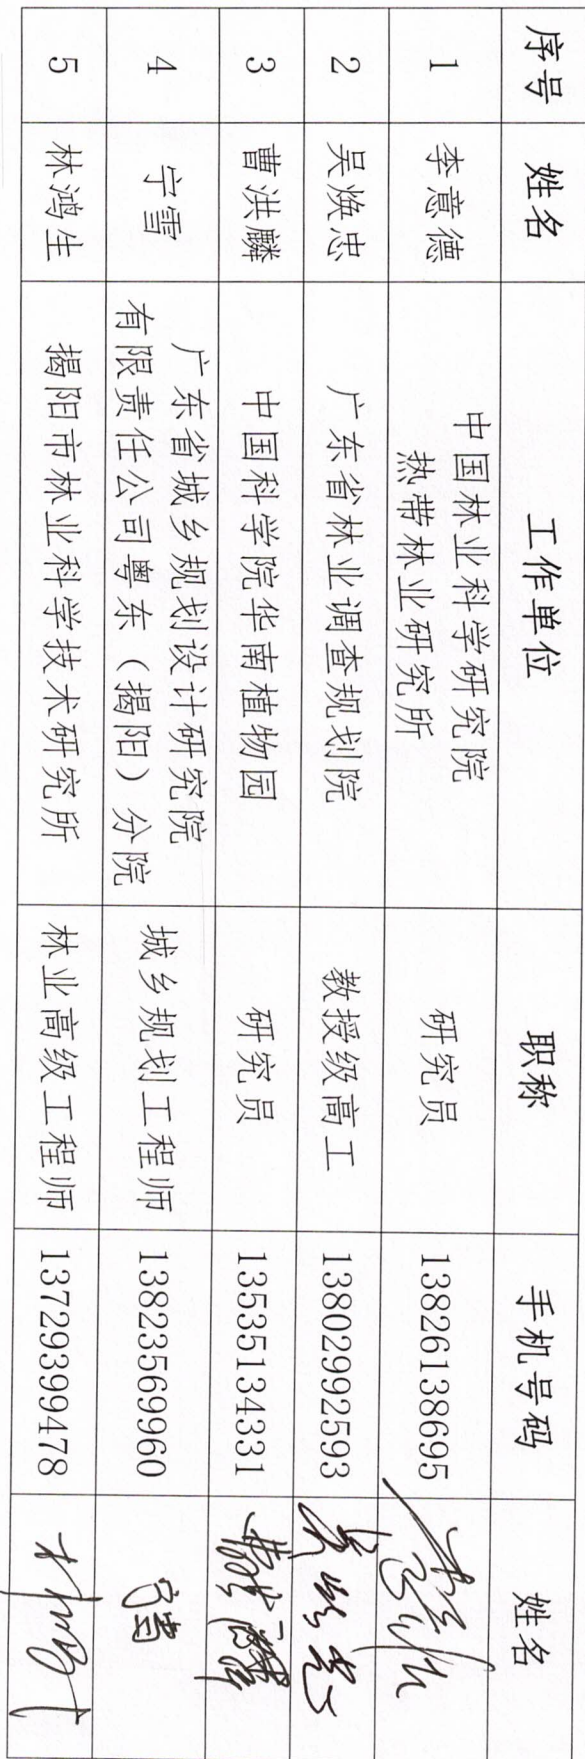 序号 姓名 工作单位 职称 手机号码 姓名
1 李意德 中国林业科学研究院
热带林业研究所 研究员 13826138695
2 吴焕忠 广东省林业调查规划院 教授级高工 13802992593
3 曹洪麟 中国科学院华南植物园 研究员 13535134331
4 宁雪 广东省城乡规划设计研究院
有限责任公司粤东（揭阳）分院 城乡规划工程师 13823569960
5 林鸿生 揭阳市林业科学技术研究所 林业高级工程师 13729399478